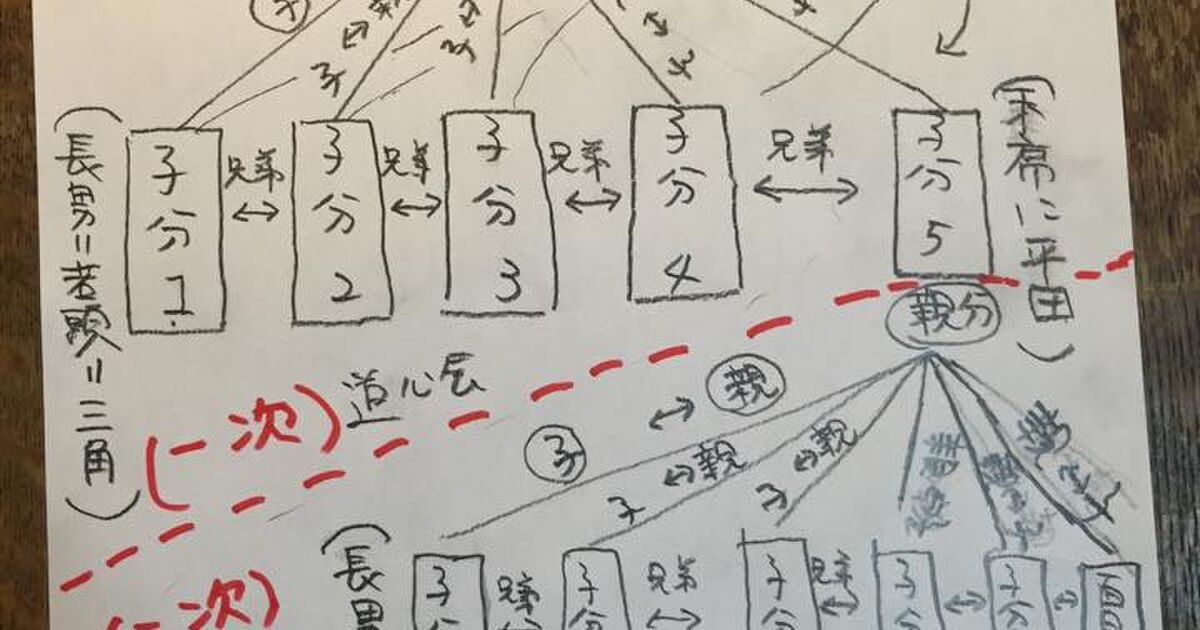 子
子 ↔ 親
子
子
子
子分1
兄弟
子分2
兄弟
子分3
兄弟
子分4
兄弟
子分5
(長男=若頭=三角)
(末席に平田)
親分
(一次)
道心会
子 ↔ 親
子 ↔ 親
子 ↔ 親
(二次)
(長男
子分
兄弟
子分
兄弟
子分
兄弟
子分
子分